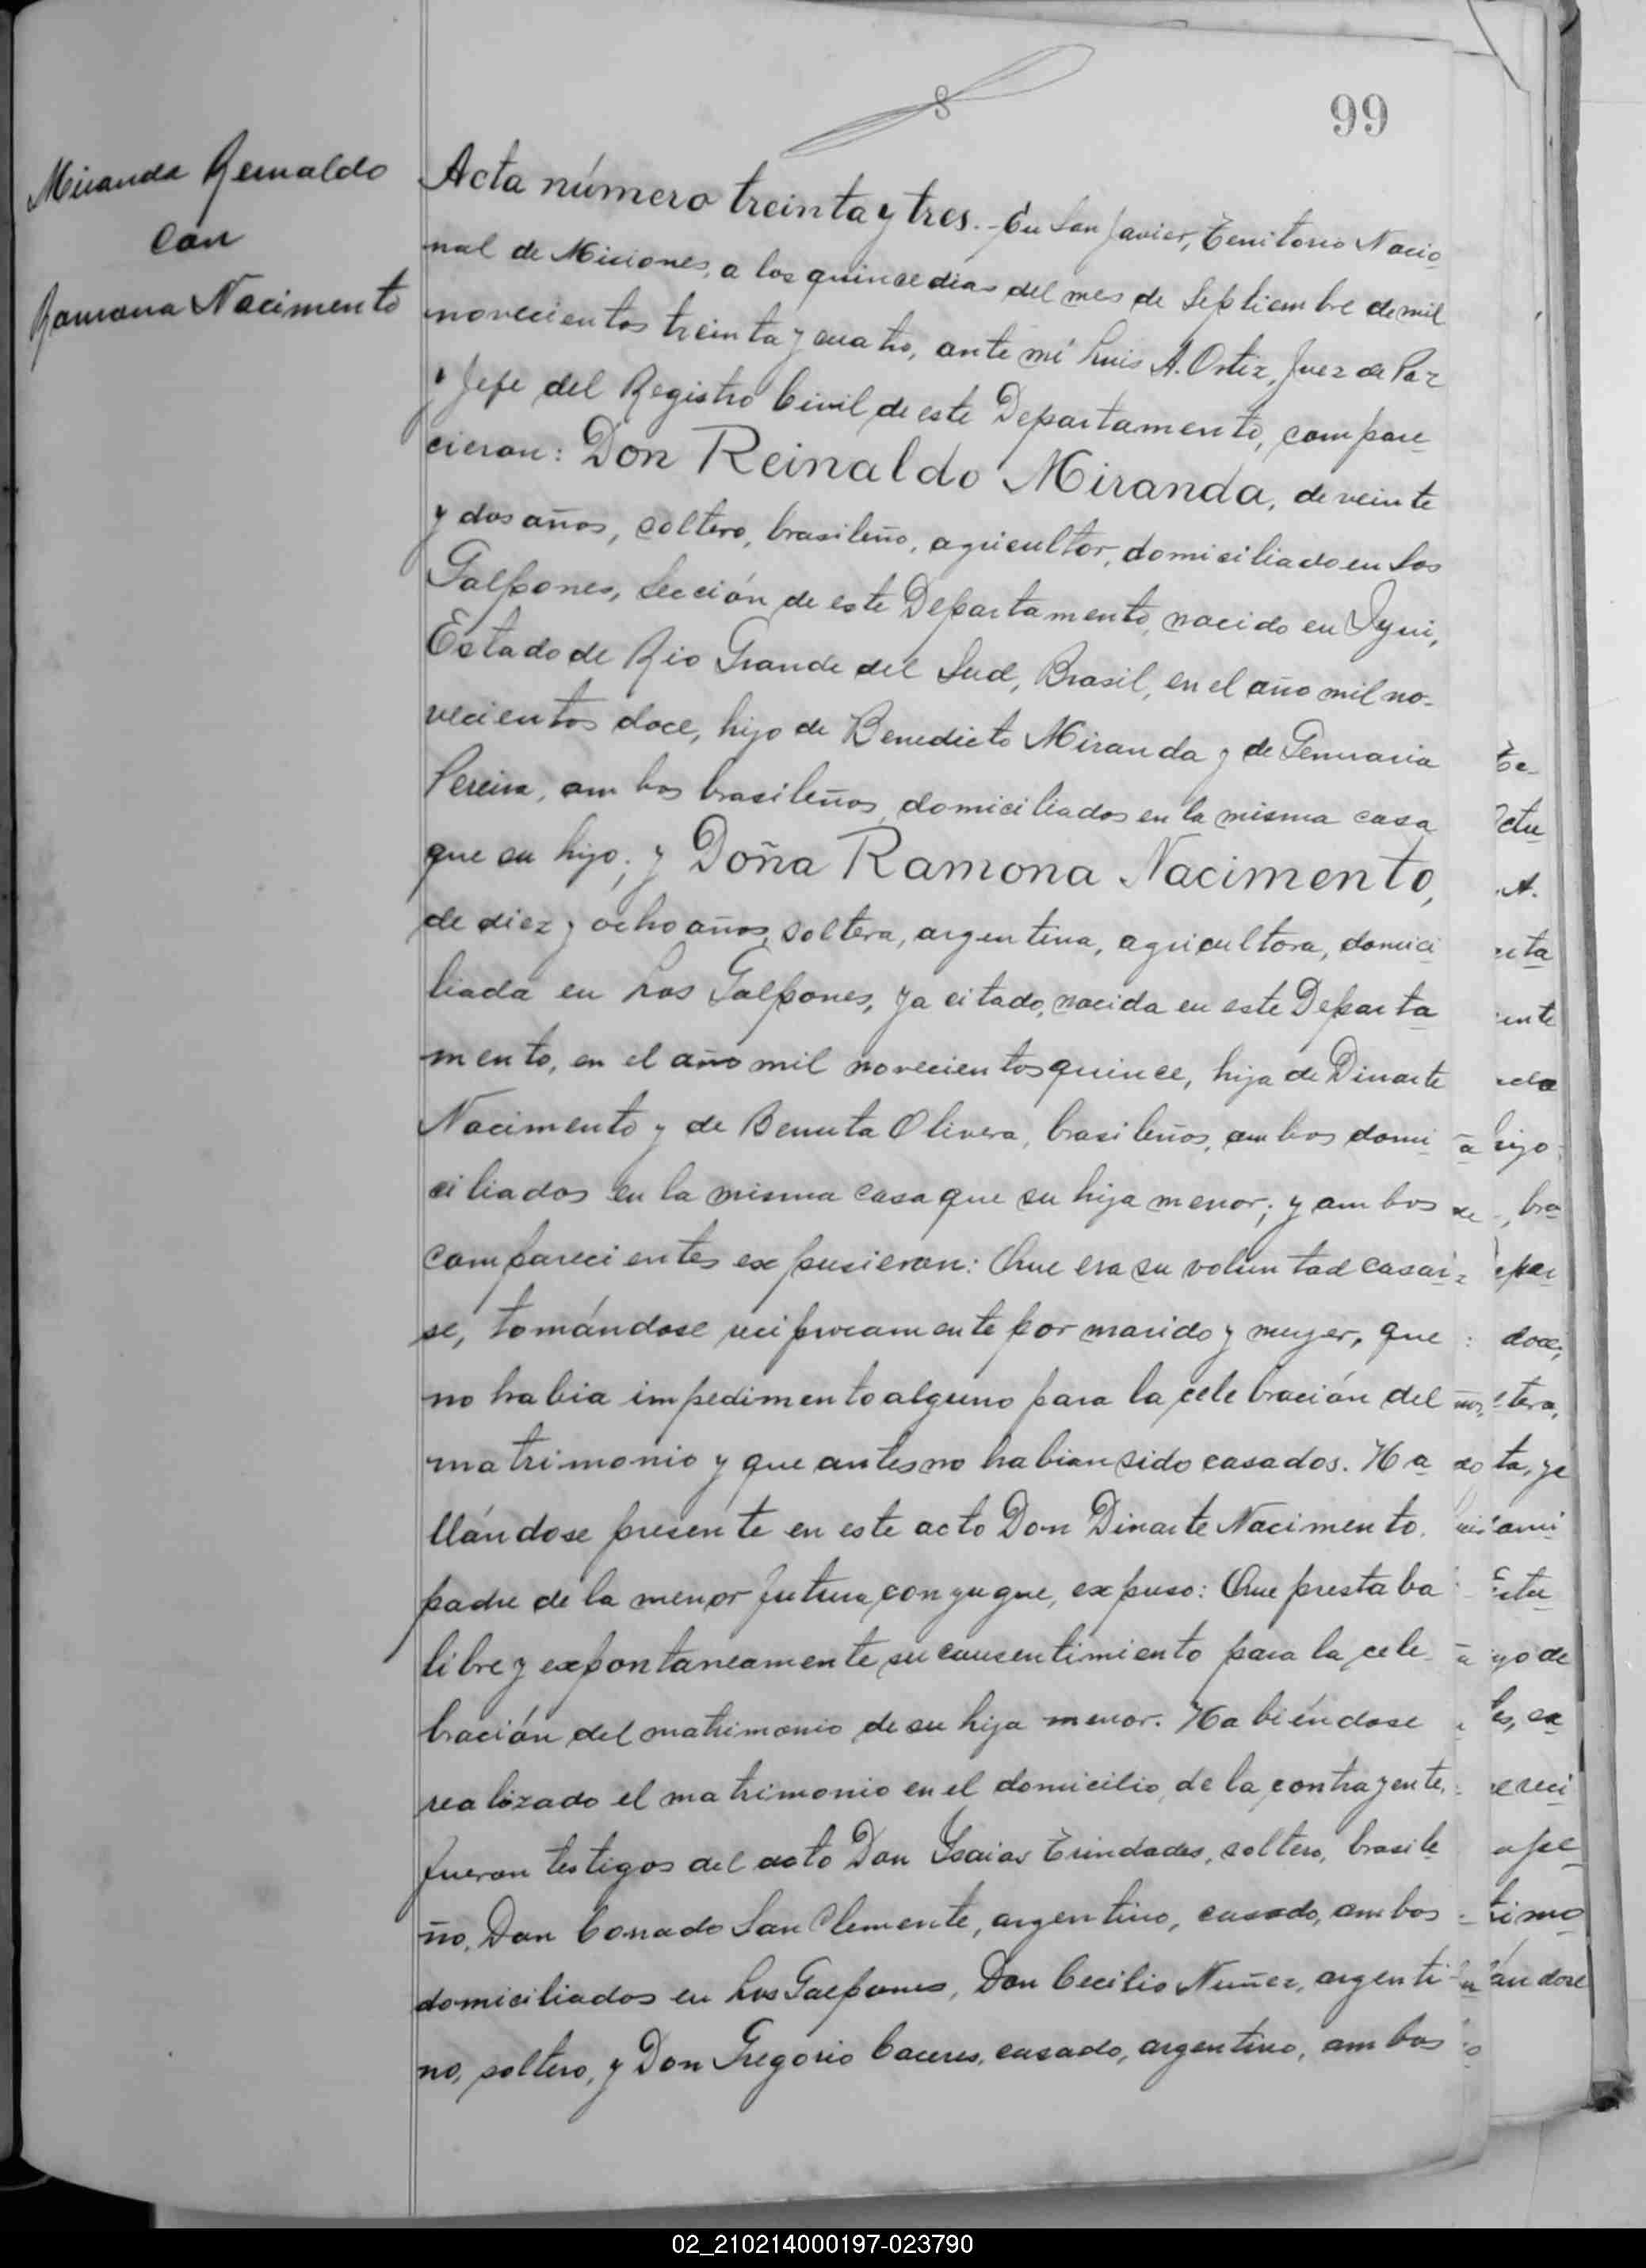 99
Miranda Reinaldo
con
Ramona Nacimento
Acta número treinta y tres. - En San Javier, Territorio Nacio
nal de Misiones, a los quince dias del mes de Septiembre de mil
novecientos treinta y cuatro, ante mi Luis A. Ortiz, Juez de Paz
y Jefe del Registro Civil de este Departamento, compare
cieron: Don Reinaldo Miranda, de veinte
y dos años, soltero, brasileño, agricultor, domiciliado en Los
Galpones, Sección de este Departamento, nacido en Iyui,
Estado de Rio Grande del Sud, Brasil, en el año mil no-
vecientos doce, hijo de Benedicto Miranda y de Genuaria
Pereira, ambos brasileños, domiciliados en la misma casa
que su hijo; y Doña Ramona Nacimento,
de diez y ocho años, soltera, argentina, agricultora, domici
liada en Los Galpones, ya citado, nacida en este Departa
mento, en el año mil novecientos quince, hija de Dinarte
Nacimento y de Benuta Olivera, brasileños, ambos domi
ciliados en la misma casa que su hija menor; y ambos
comparecientes expusieron: Que era su voluntad casar
se, tomándose reciprocamente por marido y mujer, que
no habia impedimento alguno para la celebración del
matrimonio y que antes no habian sido casados. Ha
llándose presente en este acto Don Dinarte Nacimento,
padre de la menor futura conyugue, expuso: Que prestaba
libre y expontaneamente su consentimiento para la cele
bración del matrimonio de su hija menor. Habiéndose
realizado el matrimonio en el domicilio de la contrayente,
fueron testigos del acto Don Isaias Trindades, soltero, brasile
ño, Don Conrado San Clemente, argentino, casado, ambos
domiciliados en Los Galpones, Don Cecilio Nuñez, argenti
no, soltero, y Don Gregorio Caceres, casado, argentino, ambos
02_210214000197-023790